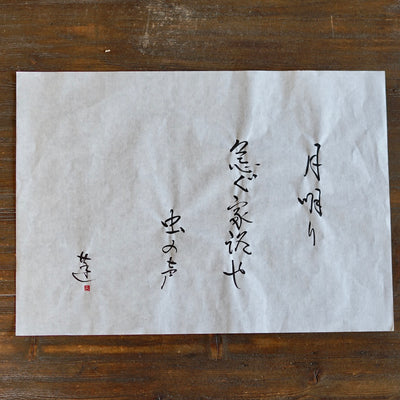 月明り
急ぐ家路や
虫の声
蓮